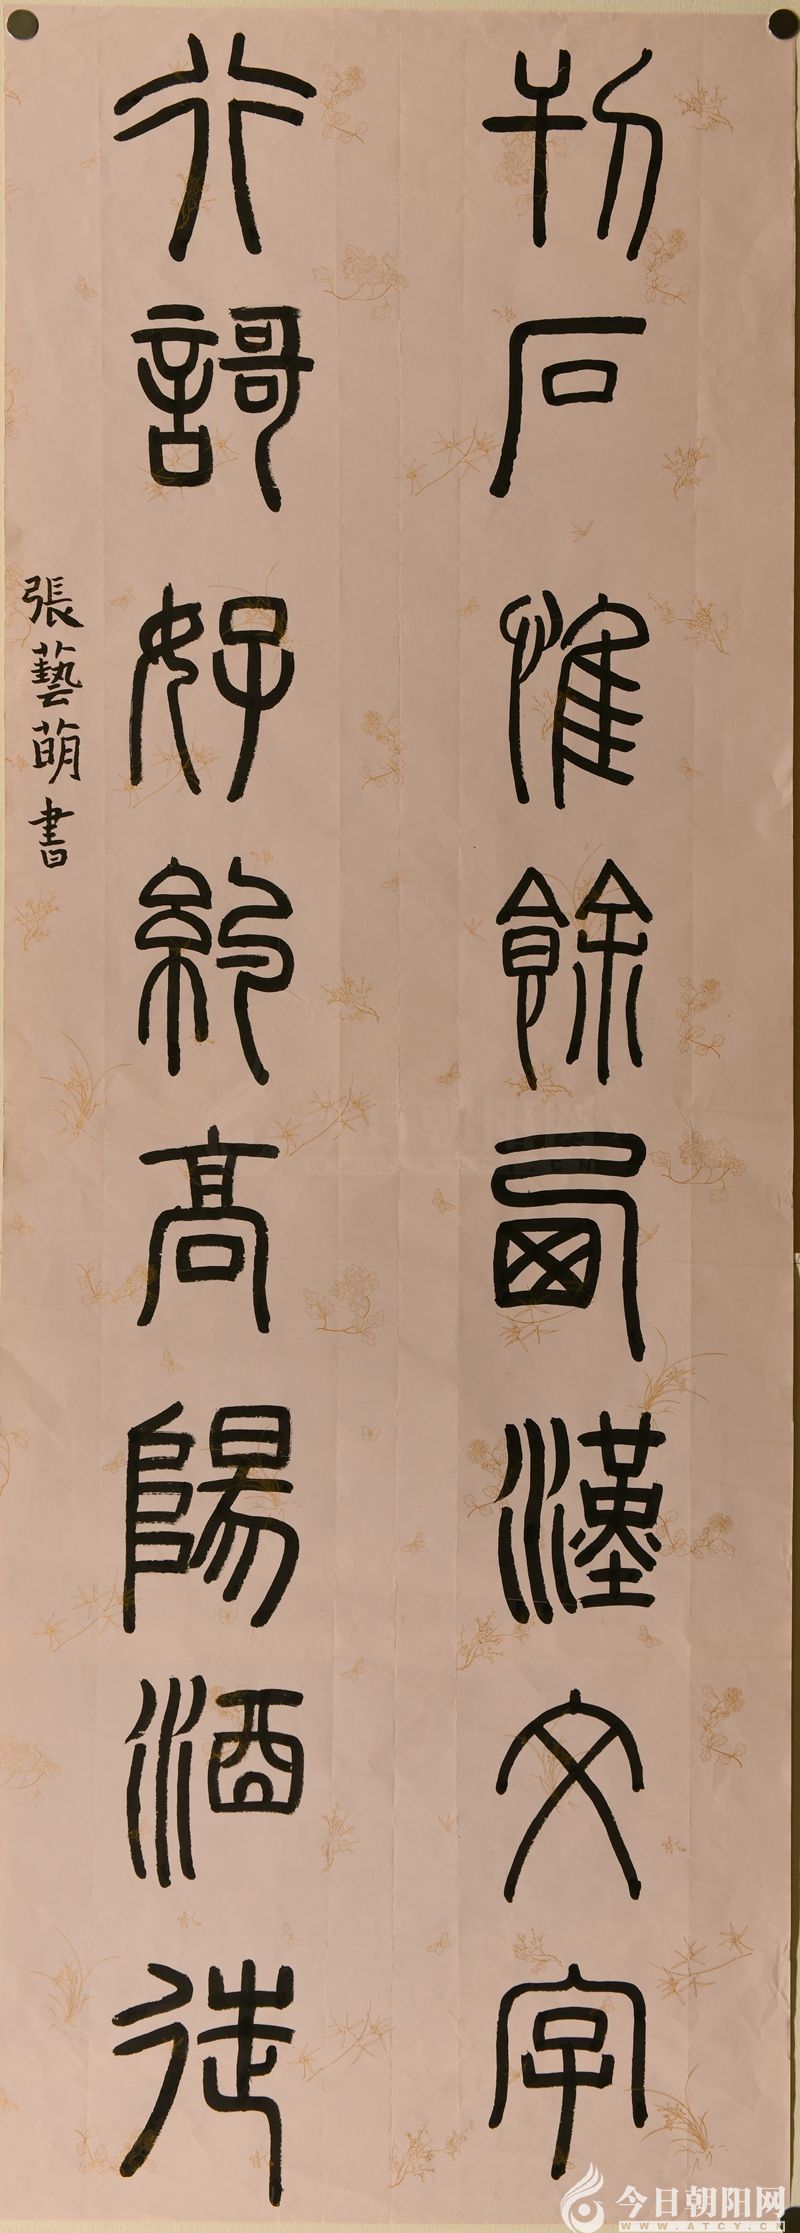 刊石惟餘西漢文字
行謌好約高陽酒徒
張藝萌書
今日朝阳网
WWW.ATCY.CN